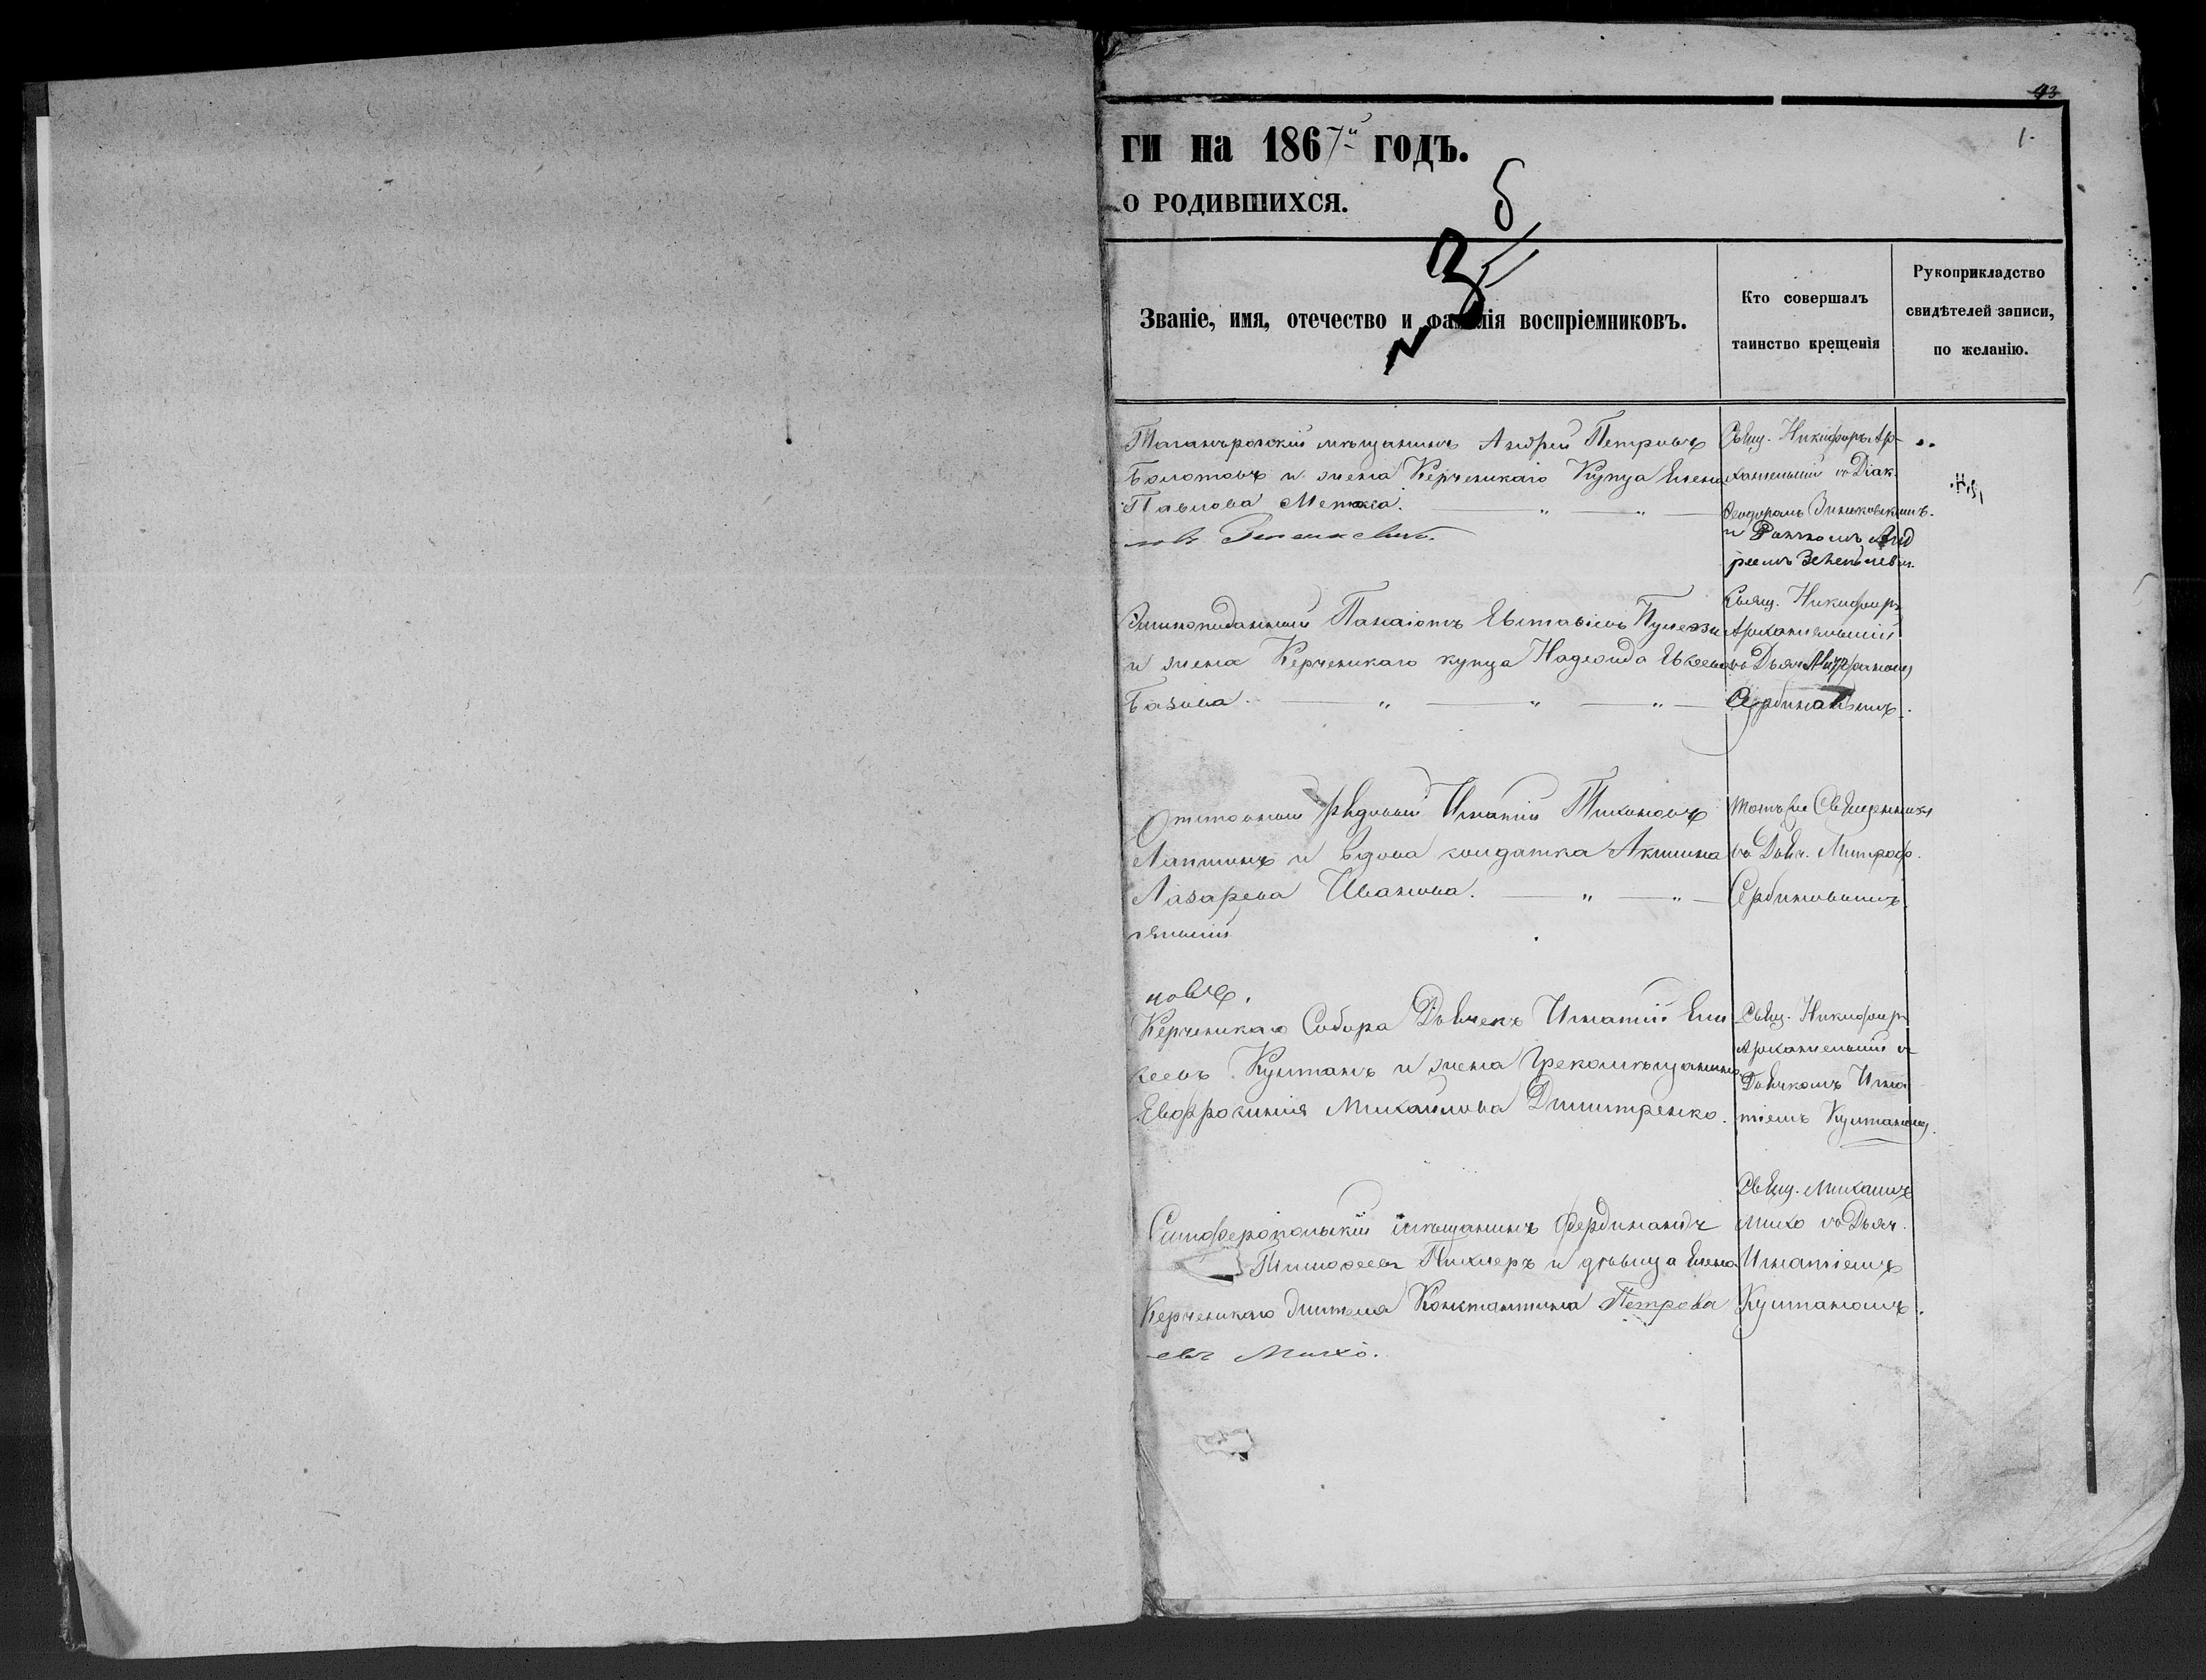 93
1.
ги на 1867й годъ.
о родившихся.
5
3
Званіе, имя, отечество и фамилія воспріемниковъ.
Кто совершалъ
таинство крещенія
Рукоприкладство
свидѣтелей записи,
по желанію.
Таганърогскій мѣщанинъ Андрей Петровъ
Болотовъ и жена Керченскаго Купца Елена
Павлова Метакса.
Свящ. Никифоръ Ар-
хангельскій съ Діак.
Ѳеодоромъ Зиньковскимъ.
и Анд
реемъ
Панаіотъ Евставіевъ
и жена Керченскаго купца Надежда
Базили.
Свящ. Никифоръ
Архангельскій
съ Дьяч. Митрофаномъ
Сербиновымъ.
Отставной рядовый Игнатій Тихоновъ
Лаптинъ и вдова солдатка Акилина
Лазарева Иванова.
гельскій
Тотъ же Священникъ
съ Дьяч. Митроф.
Сербиновымъ
новъ.
Керченскаго Собора Дьячекъ Игнатій Ели
сеевъ Кустанъ и жена Грекомѣщанина
Евфросинія Михайлова Дмитренко.
Свящ. Никифоръ
Архангельскій съ
Дьячкомъ Игна
тіемъ Кустаномъ.
Симферопольскій мѣщанинъ Фердинандъ
Тимофеевъ Пихлеръ и дѣвица Елена
Керченскаго жителя Константина Петрова
евъ Михо.
Свящ. Михаилъ
Михо съ Дьяч.
Игнатіемъ
Кустаномъ.